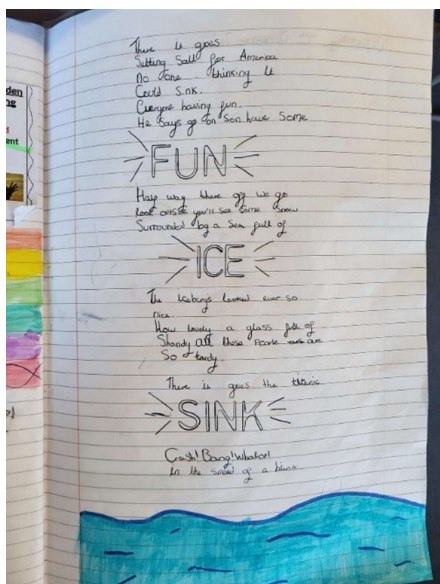 den
ng
ent
There it goes
Setting Sail for America
no one thinking it
Could Sink.
Everyone having fun.
He Says go on Son have Some
FUN
Half way there off we go
look outside you'll see some snow
Surrounded by a Sea full of
ICE
The Icebergs looked ever so
nice
How lovely a glass full of
Shandy all these People are
So tardy.
There it goes the titanic
SINK
Crash! Bang! Whallop!
In the of a blank